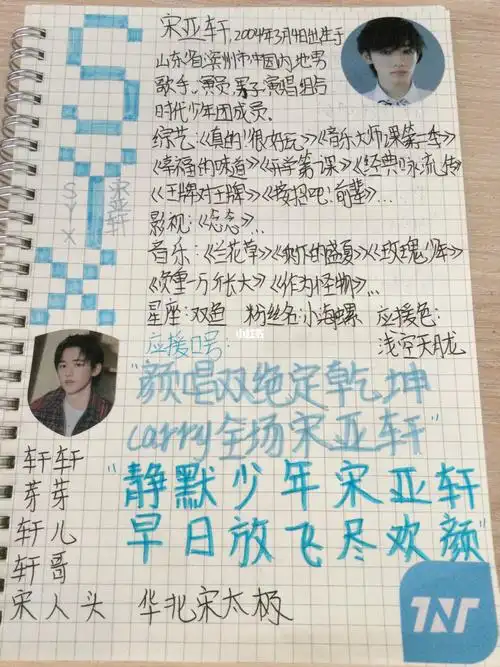 SYX
SYX
宋亚轩
宋亚轩,2004年3月4日出生于
山东省滨州市中国内地男
歌手、演员、男子演唱组与
时代少年团成员.
综艺:《真的很好玩》《音乐大师课第一季》
《幸福的味道》《开学第1课》《经典咏流传》
《王牌对王牌》《接招吧!前辈》...
影视:《忐忑》...
音乐:《兰花草》《树下的盛夏》《玫瑰少年》
《负重一万斤长大》《作为怪物》...
星座:双鱼 粉丝名:小海螺 应援色:
浅空天胧
小红书
应援口号:
"颜唱双绝定乾坤
carry全场宋亚轩"
"静默少年宋亚轩
早日放飞尽欢颜"
轩轩
芽芽
轩儿
轩哥
宋人头 华北宋太极
TNT